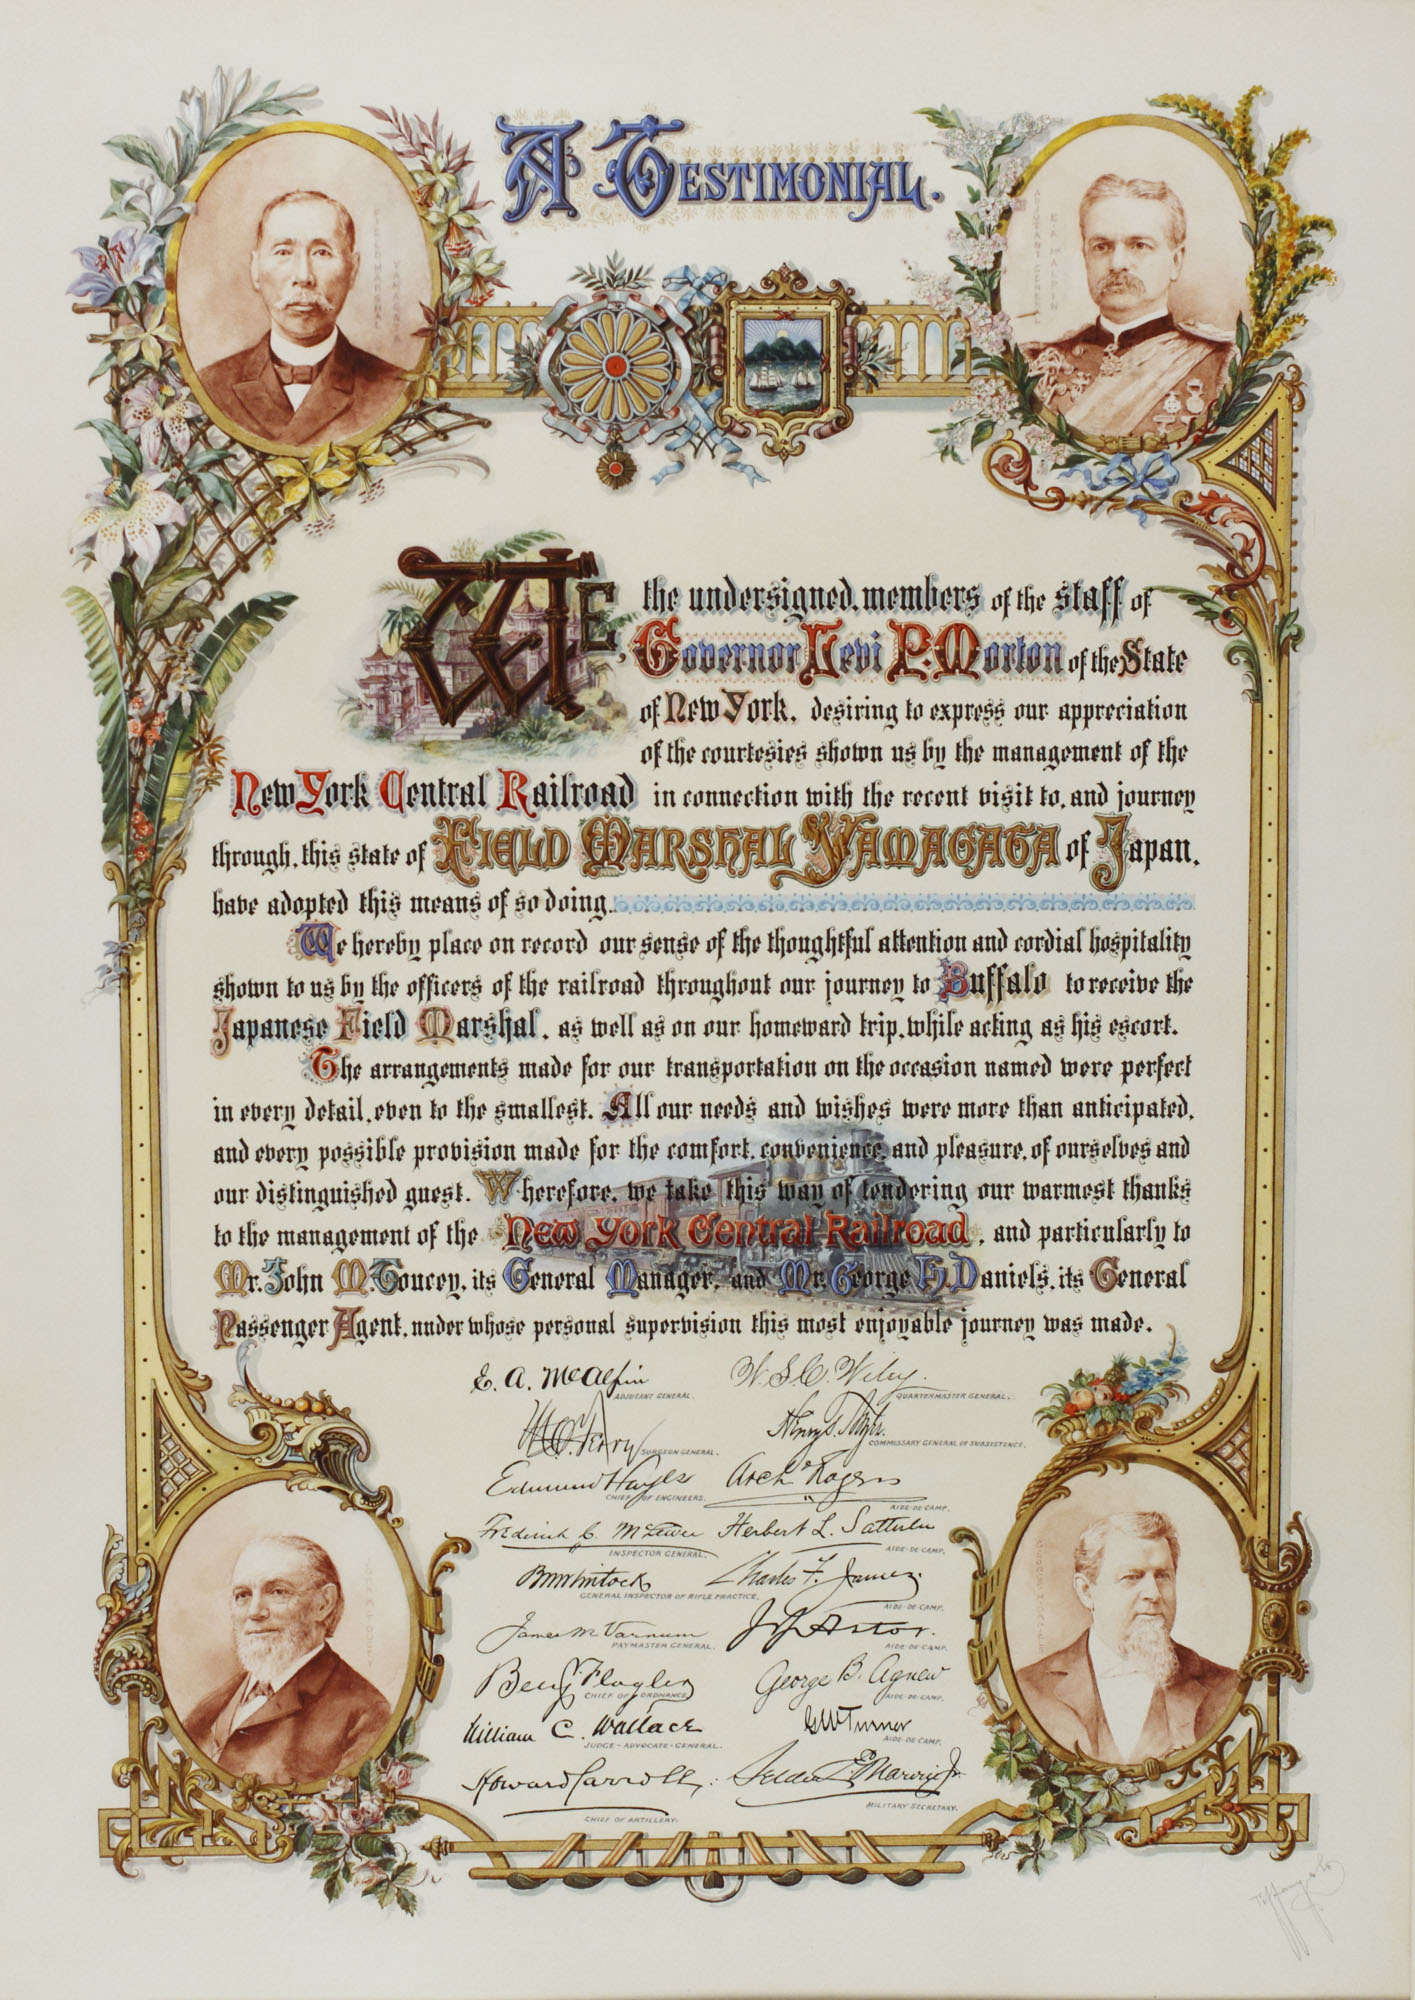 A TESTIMONIAL.
FIELD MARSHAL
YAMAGATA
ADJUTANT GENERAL
E. A. McALPIN
WE, the undersigned, members of the staff of
Governor Levi P. Morton of the State
of New York, desiring to express our appreciation
of the courtesies shown us by the management of the
New York Central Railroad in connection with the recent visit to, and journey
through, this state of FIELD MARSHAL YAMAGATA of Japan,
have adopted this means of so doing.
We hereby place on record our sense of the thoughtful attention and cordial hospitality
shown to us by the officers of the railroad throughout our journey to Buffalo to receive the
Japanese Field Marshal, as well as on our homeward trip, while acting as his escort.
The arrangements made for our transportation on the occasion named were perfect
in every detail, even to the smallest. All our needs and wishes were more than anticipated,
and every possible provision made for the comfort, convenience, and pleasure, of ourselves and
our distinguished guest. Wherefore, we take this way of tendering our warmest thanks
to the management of the New York Central Railroad, and particularly to
Mr. John M. Toucey, its General Manager, and Mr. George H. Daniels, its General
Passenger Agent, under whose personal supervision this most enjoyable journey was made.
E. A. McAlpin
ADJUTANT GENERAL.
W. S. C. Wiley.
QUARTERMASTER GENERAL.
M. O. Terry
SURGEON GENERAL.
Henry T.
COMMISSARY GENERAL OF SUBSISTENCE.
Edmund Hayes
CHIEF OF ENGINEERS.
Arch Rogers
AIDE-DE-CAMP.
Frederick C. McLewee
INSPECTOR GENERAL.
Herbert L. Satterlee
AIDE-DE-CAMP.
B M Whitlock
GENERAL INSPECTOR OF RIFLE PRACTICE.
Charles F. James.
AIDE-DE-CAMP.
James M. Varnum
PAYMASTER GENERAL.
J J Astor.
AIDE-DE-CAMP.
Benj Flagler
CHIEF OF ORDNANCE
George B. Agnew
AIDE-DE-CAMP.
William C. Wallace
JUDGE-ADVOCATE-GENERAL.
G W Turner
AIDE-DE-CAMP.
Howard Carroll
CHIEF OF ARTILLERY.
Selden E. Marvin Jr.
MILITARY SECRETARY.
Tiffany & Co